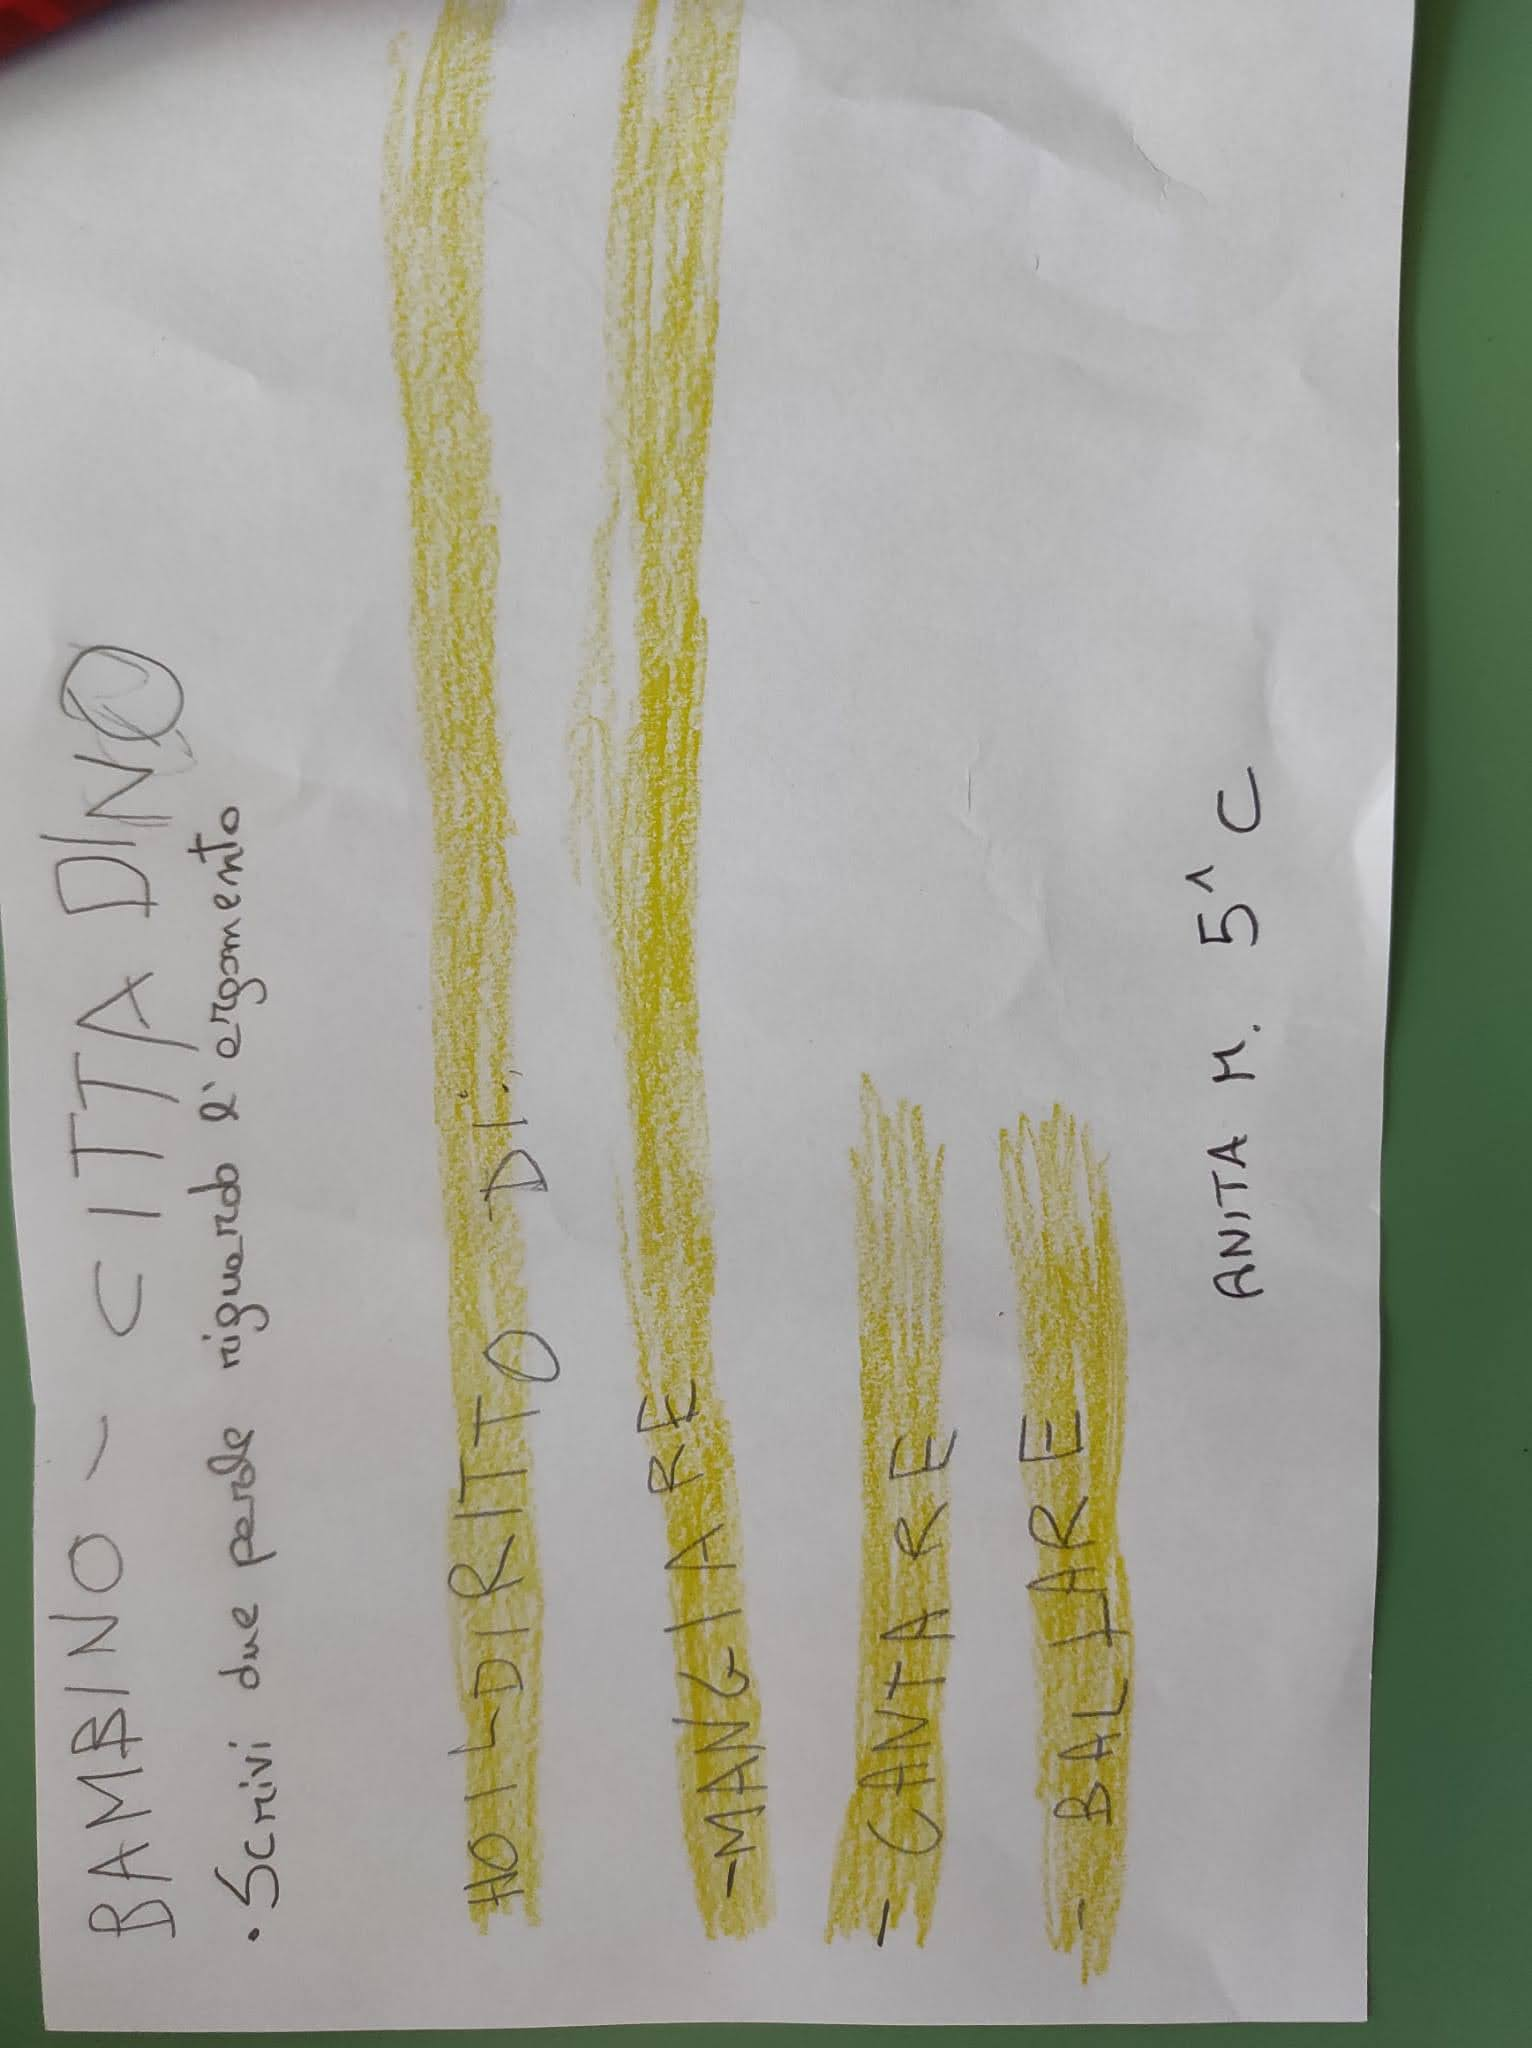 BAMBINO - CITTADINO
• Scrivi due parole riguardo l'argomento
HO IL DIRITTO DI:
- MANGIARE
- CANTARE
- BALLARE
ANITA M. 5^ C